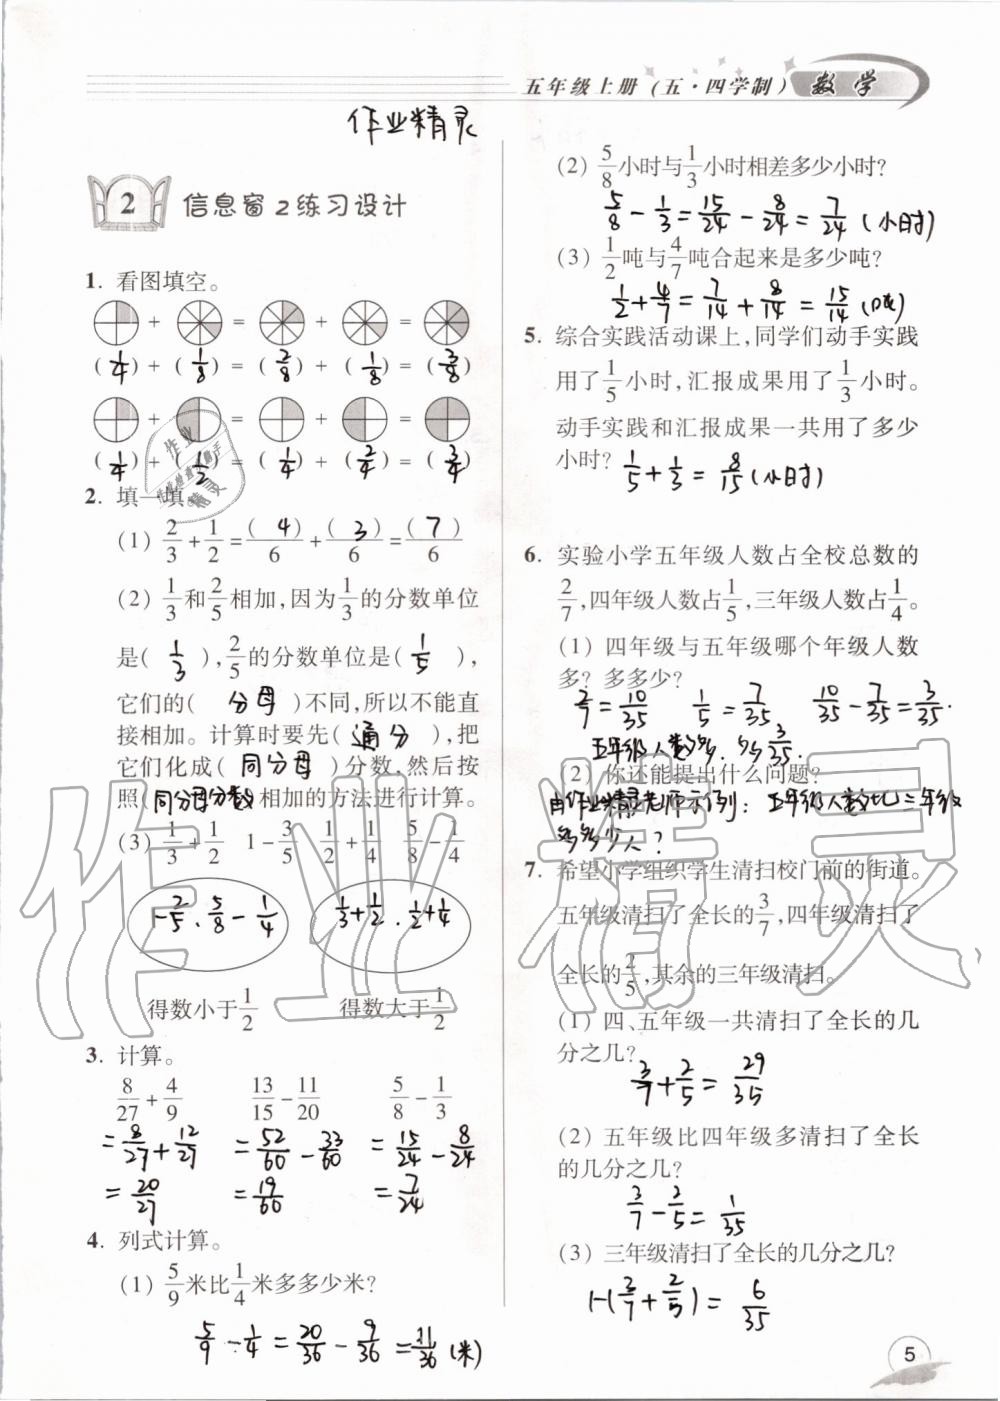 五年级上册（五·四学制） 数学
作业精灵
2 信息窗2练习设计
1. 看图填空。
+ = + =
(1/4) + (1/8) = (2/8) + (1/8) = (3/8)
+ = + =
(1/4) + (1/2) = (1/4) + (2/4) = (3/4)
2. 填一填。
(1) 2/3 + 1/2 = (4)/6 + (3)/6 = (7)/6
(2) 1/3和2/5相加，因为1/3的分数单位
是( 1/3 )，2/5的分数单位是( 1/5 )，
它们的( 分母 )不同，所以不能直
接相加。计算时要先( 通分 )，把
它们化成( 同分母 )分数，然后按
照(同分母分数)相加的方法进行计算。
(3) 1/3+1/2 1-3/5 1/2+1/4 5/8-1/4
1-2/5 . 5/8-1/4 1/3+1/2 . 1/2+1/4
得数小于1/2 得数大于1/2
3. 计算。
8/27+4/9 13/15-11/20 5/8-1/3
=8/27+12/27 =52/60-33/60 =15/24-8/24
=20/27 =19/60 =7/24
4. 列式计算。
(1) 5/9米比1/4米多多少米？
5/9-1/4=20/36-9/36=11/36(米)
(2) 5/8小时与1/3小时相差多少小时？
5/8-1/3=15/24-8/24=7/24(小时)
(3) 1/2吨与4/7吨合起来是多少吨？
1/2+4/7=7/14+8/14=15/14(吨)
5. 综合实践活动课上，同学们动手实践
用了1/5小时，汇报成果用了1/3小时。
动手实践和汇报成果一共用了多少
小时？ 1/5+1/3=8/15(小时)
6. 实验小学五年级人数占全校总数的
2/7，四年级人数占1/5，三年级人数占1/4。
(1) 四年级与五年级哪个年级人数
多？多多少？
2/7=10/35 1/5=7/35 10/35-7/35=3/35.
五年级人数多. 多3/35.
(2) 你还能提出什么问题？
由作业精灵老师示例：五年级人数比三年级
多多少人？
7. 希望小学组织学生清扫校门前的街道。
五年级清扫了全长的3/7，四年级清扫了
全长的2/5，其余的三年级清扫。
(1) 四、五年级一共清扫了全长的几
分之几？
3/7+2/5=29/35
(2) 五年级比四年级多清扫了全长
的几分之几？
3/7-2/5=1/35
(3) 三年级清扫了全长的几分之几？
1-(3/7+2/5)=6/35
5
作业精灵